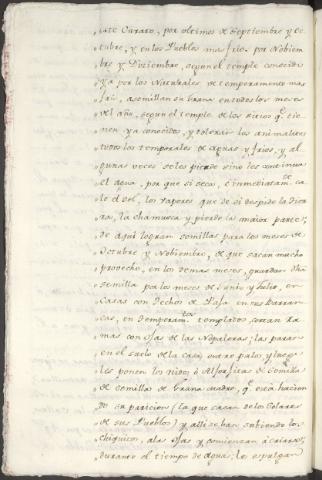 este Curato, por ultimos de Septiembre y oc
tubre, y en los Pueblos mas frios por Nobiem
bre y Diziembre, segun el temple conosido
ya por los Naturales de temperamento mas
frio, asemillan su Grana en todos los meses
del año, segun el temple de los sitios q.e tie
nen ya conosidos, y toleran los animalitos
todos los temporales de aguas y frios, y al
gunas veces se les pierde sino les continua
el agua, por que si seca, è inmediatam.te ca
le el sol, los vapores que de si despide la tier
ra, la chamusca y pierde la maior parte;
de aqui logran semillas para los meses de
Octubre y Nobiembre, de que sacan mucho
provecho, en los demas meses, guardan dha
semilla por los meses de Junio y Julio, en
Casas con techos de Paja en sus Barran
cas, en temperam.tos templados cortan Ra
mas con ojas de las Nopaleras; las paran
en el suelo de la casa quatro palos, y luego
les ponen los nidos, ò Alforjitas de Semilla
de Semilla de Grana madre, q.e està hacien
do su paricion (la que sacan de los Solares
de sus Pueblos) y alli se ban subiendo los
chiquitos, a las ojas y comienzan à criarse;
durante el tiempo de agua; los espulgan